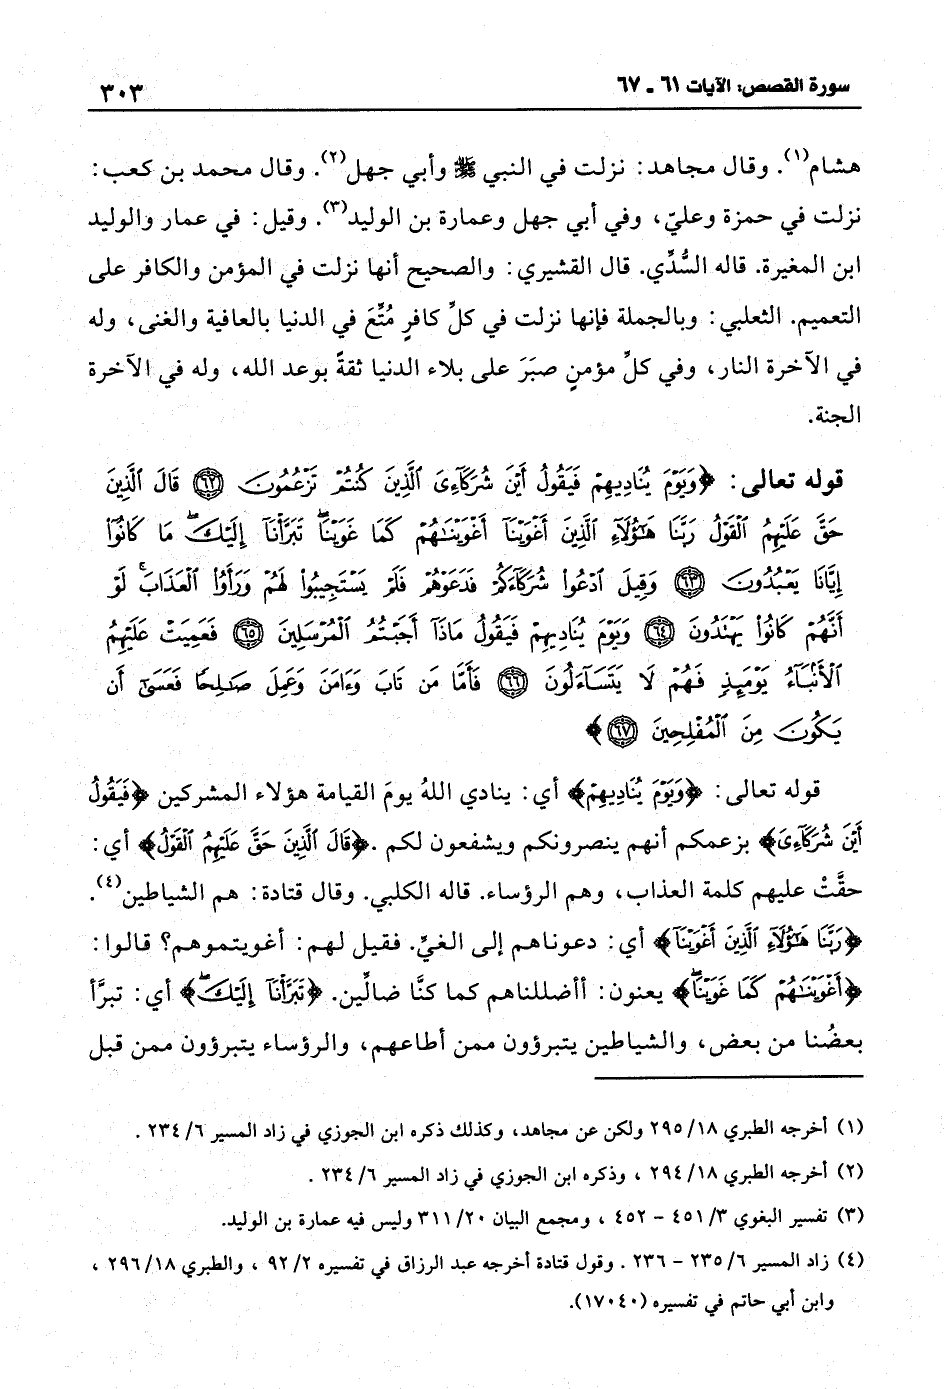 سورة القصص: الآيات ٦١ ـ ٦٧
٣٠٣
هشام(١). وقال مجاهد: نزلت في النبي ﷺ وأبي جهل(٢). وقال محمد بن كعب:
نزلت في حمزة وعليّ، وفي أبي جهل وعمارة بن الوليد(٣). وقيل: في عمار والوليد
ابن المغيرة. قاله السُّدِّي. قال القشيري: والصحيح أنها نزلت في المؤمن والكافر على
التعميم. الثعلبي: وبالجملة فإنها نزلت في كلِّ كافرٍ مُتِّعَ في الدنيا بالعافية والغنى، وله
في الآخرة النار، وفي كلِّ مؤمنٍ صبَرَ على بلاء الدنيا ثقةً بوعد الله، وله في الآخرة
الجنة.
قوله تعالى: ﴿وَيَوْمَ يُنَادِيهِمْ فَيَقُولُ أَيْنَ شُرَكَآءِىَ ٱلَّذِينَ كُنتُمْ تَزْعُمُونَ ٦٢ قَالَ ٱلَّذِينَ
حَقَّ عَلَيْهِمُ ٱلْقَوْلُ رَبَّنَا هَٰٓؤُلَآءِ ٱلَّذِينَ أَغْوَيْنَآ أَغْوَيْنَٰهُمْ كَمَا غَوَيْنَا ۖ تَبَرَّأْنَآ إِلَيْكَ ۖ مَا كَانُوٓا۟
إِيَّانَا يَعْبُدُونَ ٦٣ وَقِيلَ ٱدْعُوا۟ شُرَكَآءَكُمْ فَدَعَوْهُمْ فَلَمْ يَسْتَجِيبُوا۟ لَهُمْ وَرَأَوُا۟ ٱلْعَذَابَ ۚ لَوْ
أَنَّهُمْ كَانُوا۟ يَهْتَدُونَ ٦٤ وَيَوْمَ يُنَادِيهِمْ فَيَقُولُ مَاذَآ أَجَبْتُمُ ٱلْمُرْسَلِينَ ٦٥ فَعَمِيَتْ عَلَيْهِمُ
ٱلْأَنۢبَآءُ يَوْمَئِذٍ فَهُمْ لَا يَتَسَآءَلُونَ ٦٦ فَأَمَّا مَن تَابَ وَءَامَنَ وَعَمِلَ صَٰلِحًا فَعَسَىٰٓ أَن
يَكُونَ مِنَ ٱلْمُفْلِحِينَ ٦٧﴾
قوله تعالى: ﴿وَيَوْمَ يُنَادِيهِمْ﴾ أي: ينادي اللهُ يومَ القيامة هؤلاء المشركين ﴿فَيَقُولُ
أَيْنَ شُرَكَآءِىَ﴾ بزعمكم أنهم ينصرونكم ويشفعون لكم .﴿قَالَ ٱلَّذِينَ حَقَّ عَلَيْهِمُ ٱلْقَوْلُ﴾ أي:
حقَّتْ عليهم كلمة العذاب، وهم الرؤساء. قاله الكلبي. وقال قتادة: هم الشياطين(٤).
﴿رَبَّنَا هَٰٓؤُلَآءِ ٱلَّذِينَ أَغْوَيْنَآ﴾ أي: دعوناهم إلى الغيِّ. فقيل لهم: أغويتموهم؟ قالوا:
﴿أَغْوَيْنَٰهُمْ كَمَا غَوَيْنَا ۖ﴾ يعنون: أأضللناهم كما كنَّا ضالِّين. ﴿تَبَرَّأْنَآ إِلَيْكَ ۖ﴾ أي: تبرَّأ
بعضُنا من بعض، والشياطين يتبرؤون ممن أطاعهم، والرؤساء يتبرؤون ممن قبل
(١) أخرجه الطبري ١٨/ ٢٩٥ ولكن عن مجاهد، وكذلك ذكره ابن الجوزي في زاد المسير ٦/ ٢٣٤ .
(٢) أخرجه الطبري ١٨/ ٢٩٤ ، وذكره ابن الجوزي في زاد المسير ٦/ ٢٣٤ .
(٣) تفسير البغوي ٣/ ٤٥١ – ٤٥٢ ، ومجمع البيان ٢٠/ ٣١١ وليس فيه عمارة بن الوليد.
(٤) زاد المسير ٦/ ٢٣٥ – ٢٣٦ . وقول قتادة أخرجه عبد الرزاق في تفسيره ٢/ ٩٢ ، والطبري ١٨/ ٢٩٦ ،
وابن أبي حاتم في تفسيره (١٧٠٤٠).